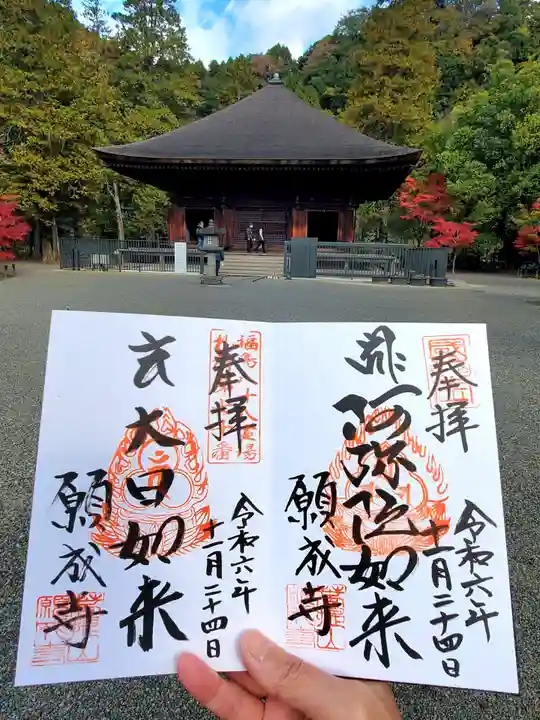 奉拝
令和六年
十一月二十四日
阿弥陀如来
願成寺
奉拝
令和六年
十一月二十四日
大日如来
願成寺